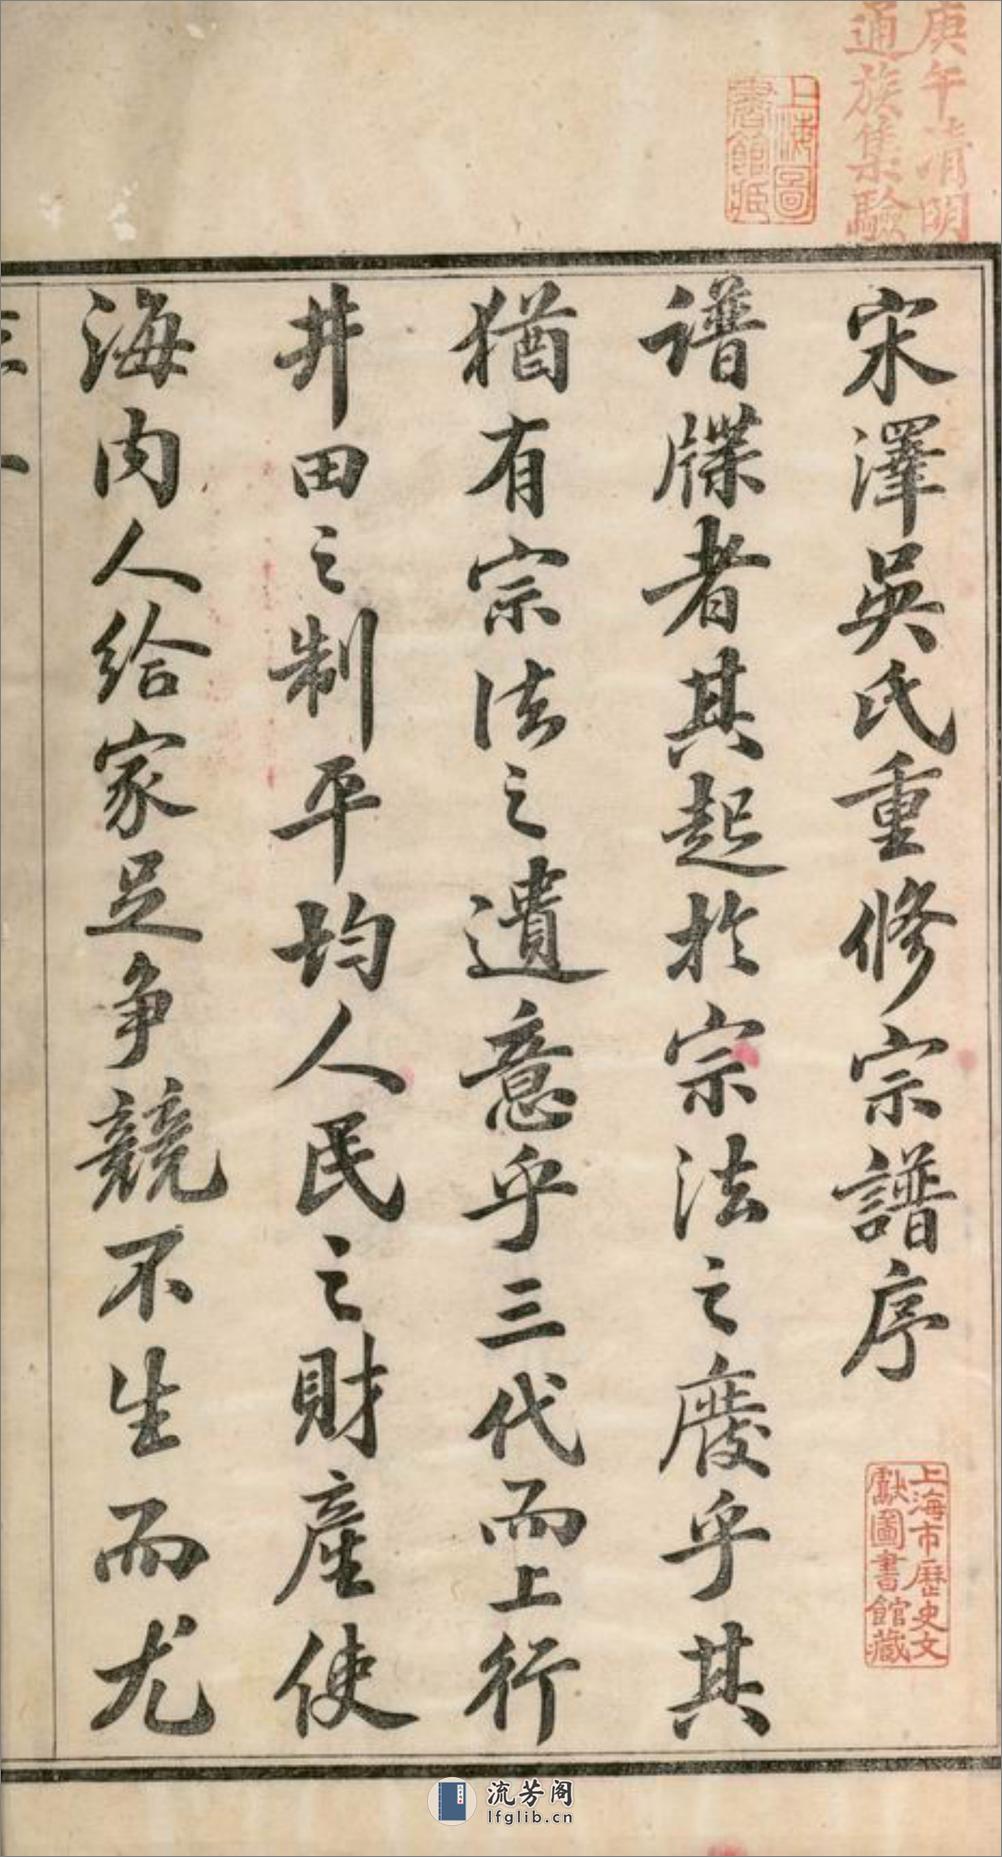 庚午清明
通族集驗
上海圖
書館藏
宋澤吳氏重修宗譜序
譜牒者其起於宗法之廢乎其
猶有宗法之遺意乎三代而上行
井田之制平均人民之財產使
海内人給家足争競不生而尤
上海市歷史文
獻圖書館藏
流芳阁
lfglib.cn